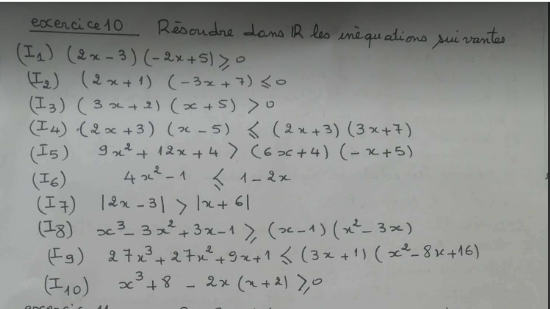 exercice 10 Résoudre dans ℝ les inéquations suivantes
(I1) (2x-3)(-2x+5) ⩾ 0
(I2) (2x+1) (-3x+7) ⩽ 0
(I3) (3x+2) (x+5) > 0
(I4) (2x+3) (x-5) ⩽ (2x+3)(3x+7)
(I5) 9x² + 12x + 4 > (6x+4)(-x+5)
(I6) 4x² - 1 ⩽ 1 - 2x
(I7) |2x-3| > |x+6|
(I8) x³ - 3x² + 3x - 1 ⩾ (x-1)(x² - 3x)
(I9) 27x³ + 27x² + 9x + 1 ⩽ (3x+1)(x² - 8x + 16)
(I10) x³ + 8 - 2x(x+2) ⩾ 0